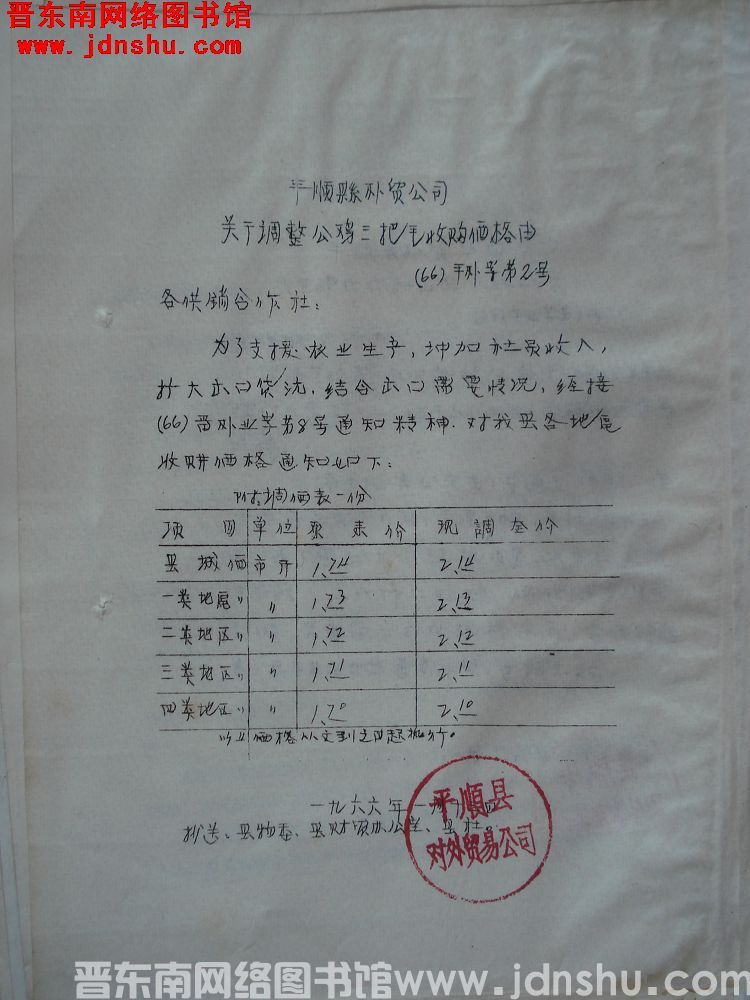 晋东南网络图书馆
www.jdnshu.com
平順縣外贸公司
关于調整公鸡三把毛收购価格由
(66)平外字第2号
各供銷合作社：
为了支援农业生产，增加社员收入，
扩大出口货沅，结合出口需要情况，经接
(66)晋外业字第8号通知精神．对我县各地區
收购価格通知如下：
附：調価表一份
项目 单位 原来价 现調整价
县城価 市斤 1.74 2.14
一类地區〃 〃 1.73 2.13
二类地区〃 〃 1.72 2.12
三类地区〃 〃 1.71 2.11
四类地区〃 〃 1.70 2.10
以上価格从文到之日起执行。
一九六六年一月
抄送：县物委、县财贸办公室、县社。
平順县
对外贸易公司
晋东南网络图书馆www.jdnshu.com